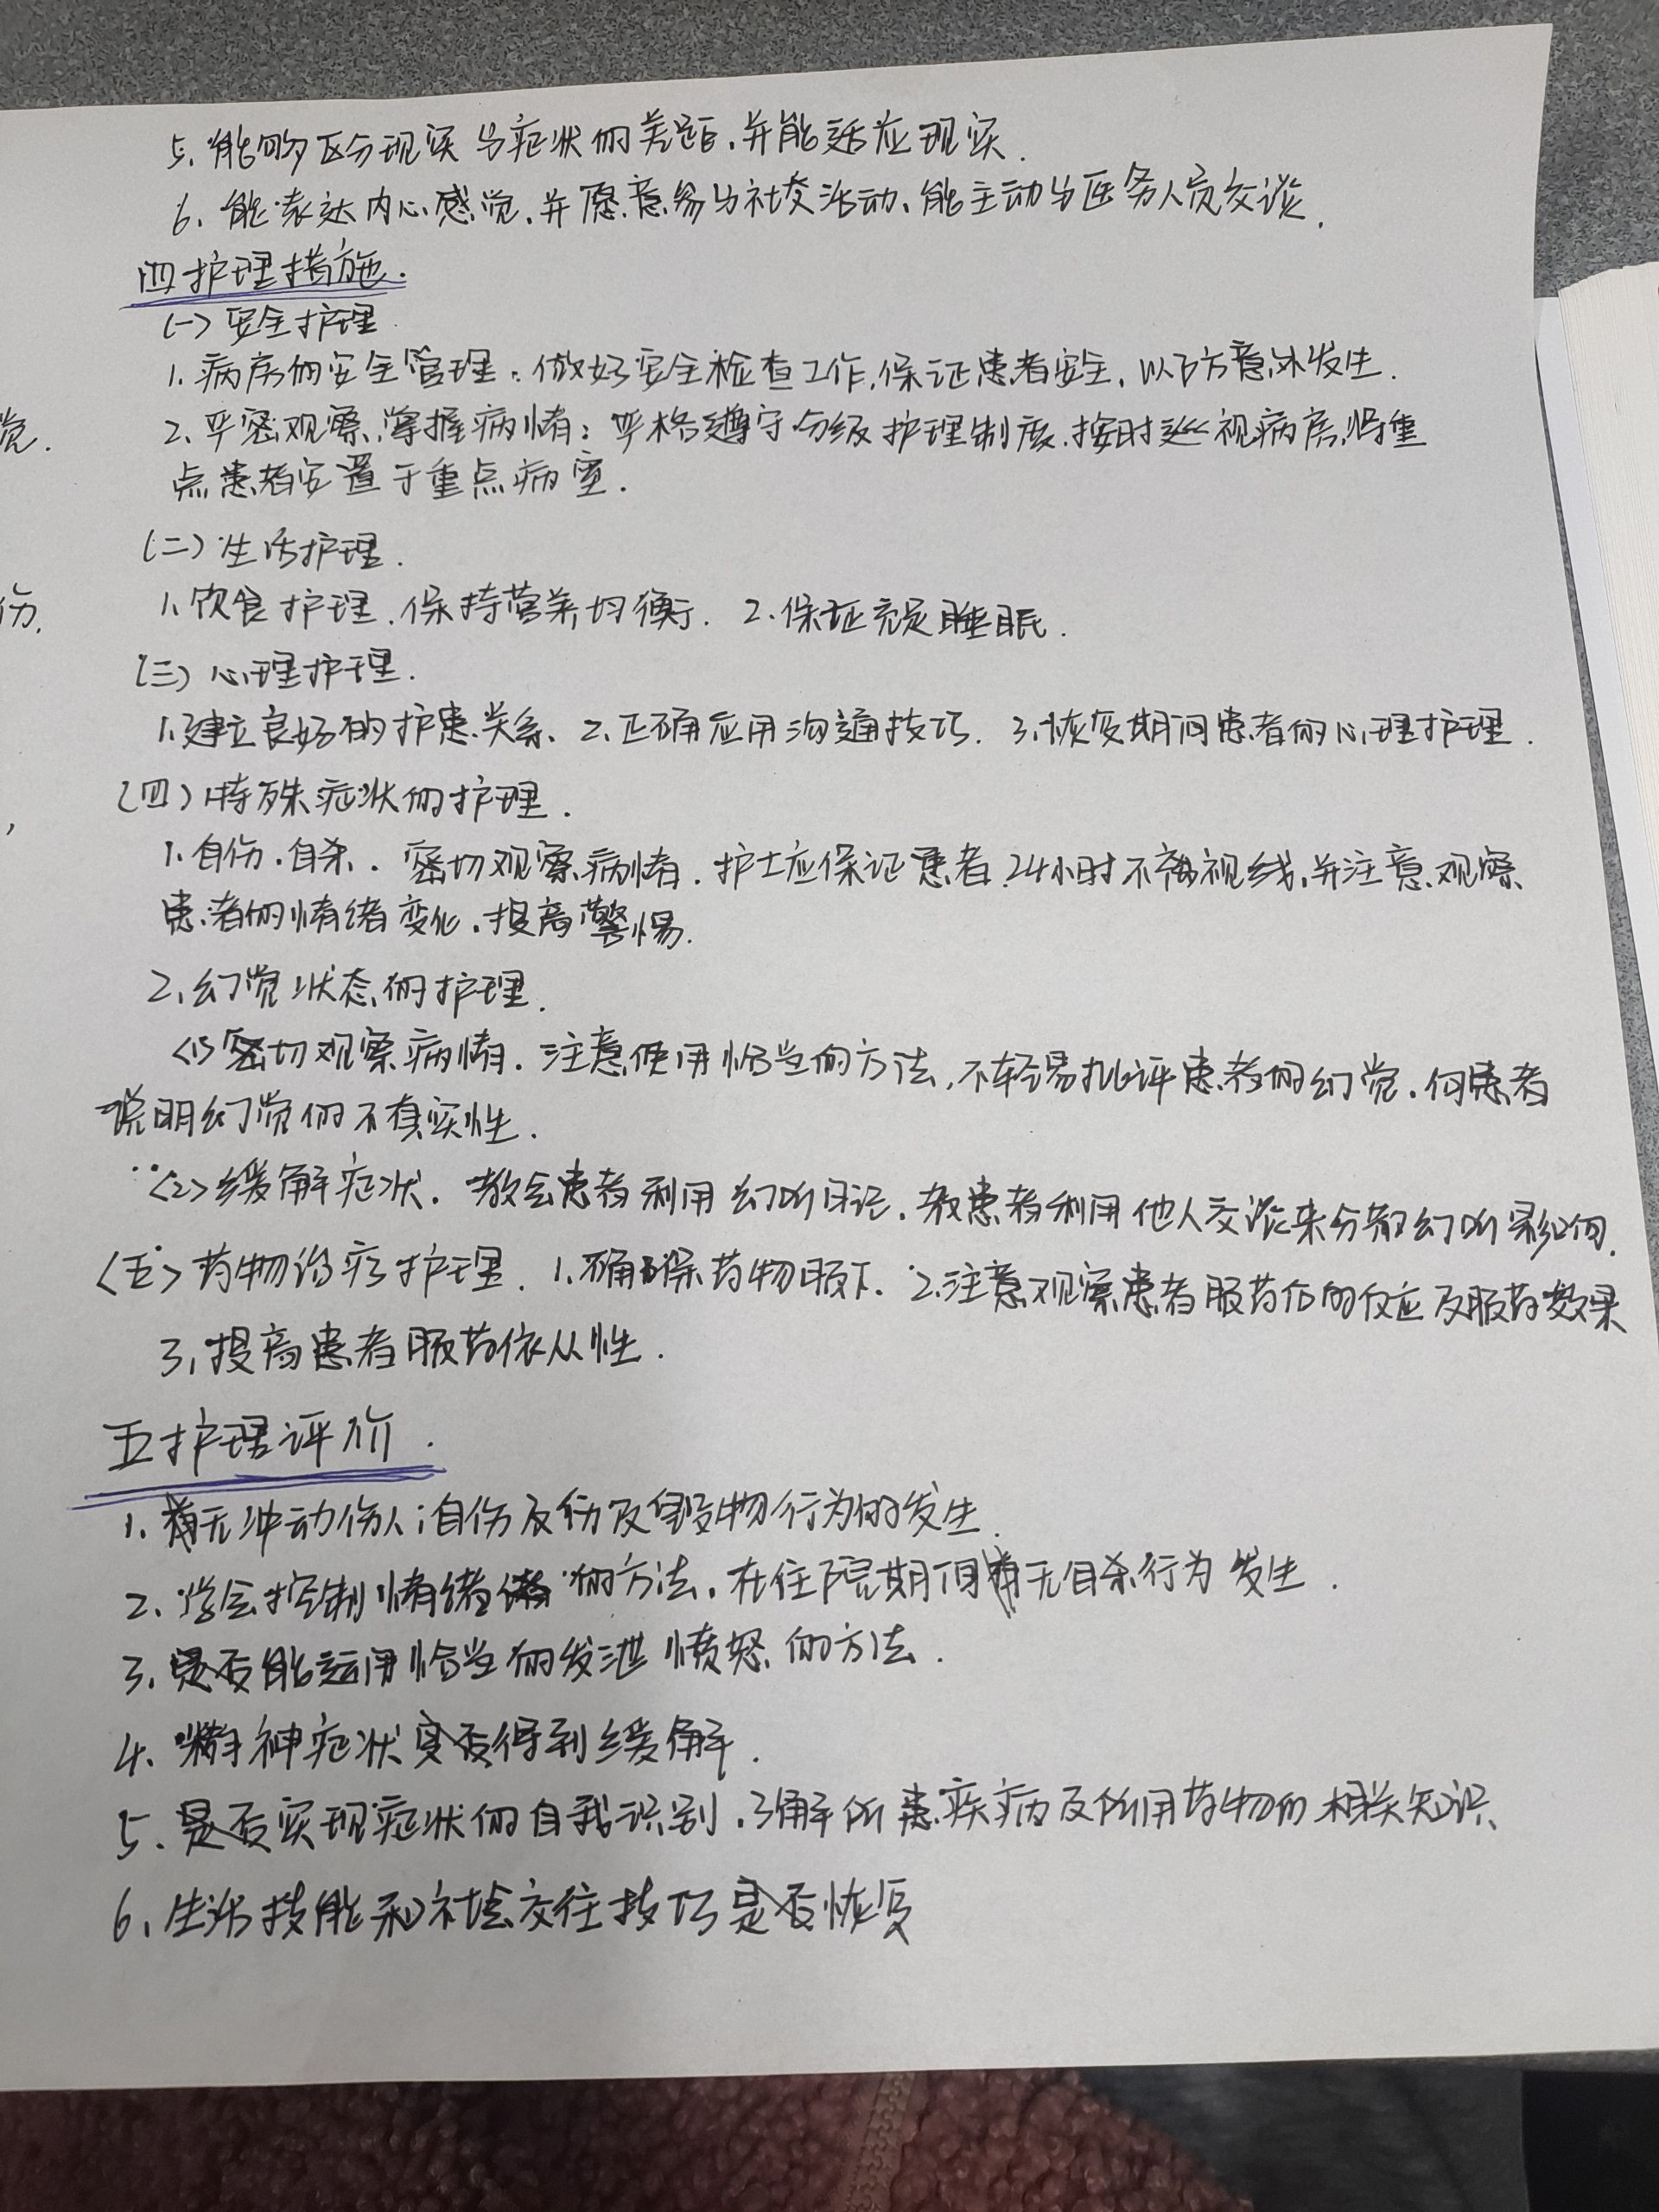 5. 能够区分现实与症状的差距,并能适应现实.
6、能表达内心感觉,并愿意参与社交活动、能主动与医务人员交谈.
四护理措施.
(一)安全护理
1. 病房的安全管理:做好安全检查工作,保证患者安全,以防意外发生.
觉. 2、严密观察,掌握病情:严格遵守分级护理制度.按时巡视病房,将重
点患者安置于重点病室.
(二)生活护理.
伤. 1、饮食护理.保持营养均衡. 2.保证充足睡眠.
(三)心理护理.
1.建立良好的护患关系、2.正确应用沟通技巧. 3.恢复期间患者的心理护理.
(四)特殊症状的护理.
1.自伤.自杀.密切观察病情.护士应保证患者24小时不离视线,并注意观察
患者的情绪变化.提高警惕.
2、幻觉状态的护理.
<1>密切观察病情.注意使用恰当的方法,不轻易批评患者的幻觉.向患者
说明幻觉的不真实性.
<2>缓解症状.教会患者利用幻听日记.教患者利用他人交谈来分散幻听影响.
<五>药物治疗护理. 1.确保药物服下. 2.注意观察患者服药后的反应及服药效果
3,提高患者服药依从性.
五护理评价.
1. 有无冲动伤人;自伤及伤及毁物行为的发生.
2. 学会控制情绪的方法,在住院期间有无自杀行为发生.
3. 是否能运用恰当的发泄愤怒的方法.
4、精神症状是否得到缓解.
5. 是否实现症状的自我识别,了解所患疾病及所用药物的相关知识、
6、生活技能和社会交往技巧是否恢复